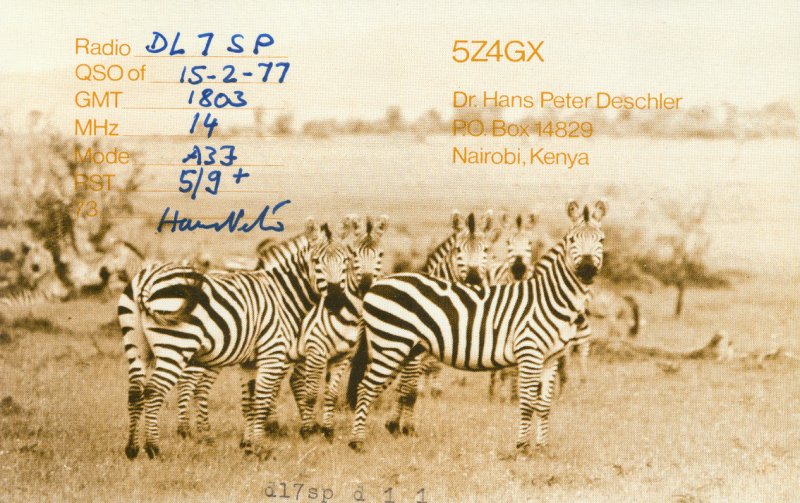 Radio DL7SP
QSO of 15-2-77
GMT 1803
MHz 14
Mode A3J
RST 5/9+
73
5Z4GX
Dr. Hans Peter Deschler
P.O. Box 14829
Nairobi, Kenya
dl7sp d 1 1